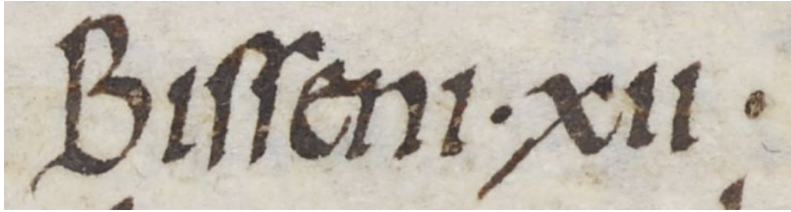 Biſſeni·xii·